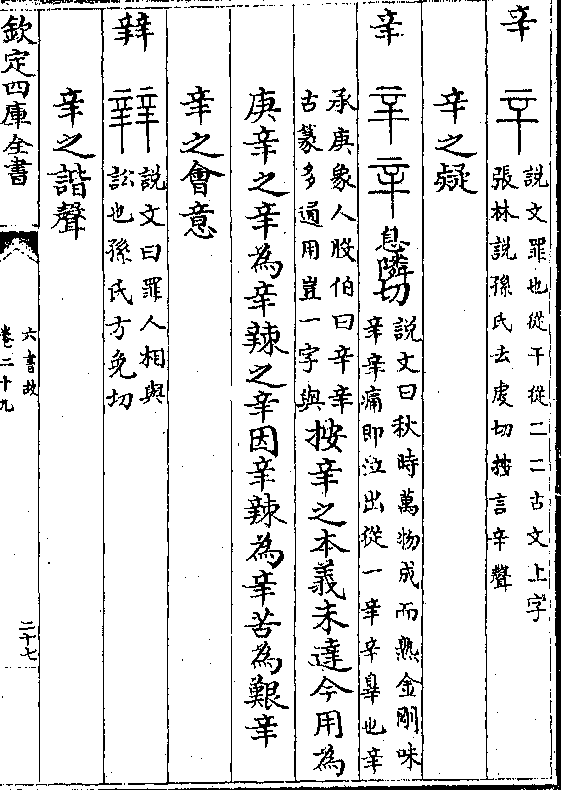 䇂
説文罪也從干從二二古文上字
張林説孫氏去虔切言䇂聲
䇂之疑
辛
息隣切
説文曰秋時萬物成而熟金剛味
辛辛痛即泣出從一䇂䇂辠也辛
承庚象人股伯曰辛䇂
古篆多通用豈一字與
按辛之本義未達今用為
庚辛之辛為辛辣之辛因辛辣為辛苦為艱辛
辛之會意
辡
説文曰罪人相與
訟也孫氏方免切
辛之諧聲
欽定四庫全書
六書故
卷二十九
二十七